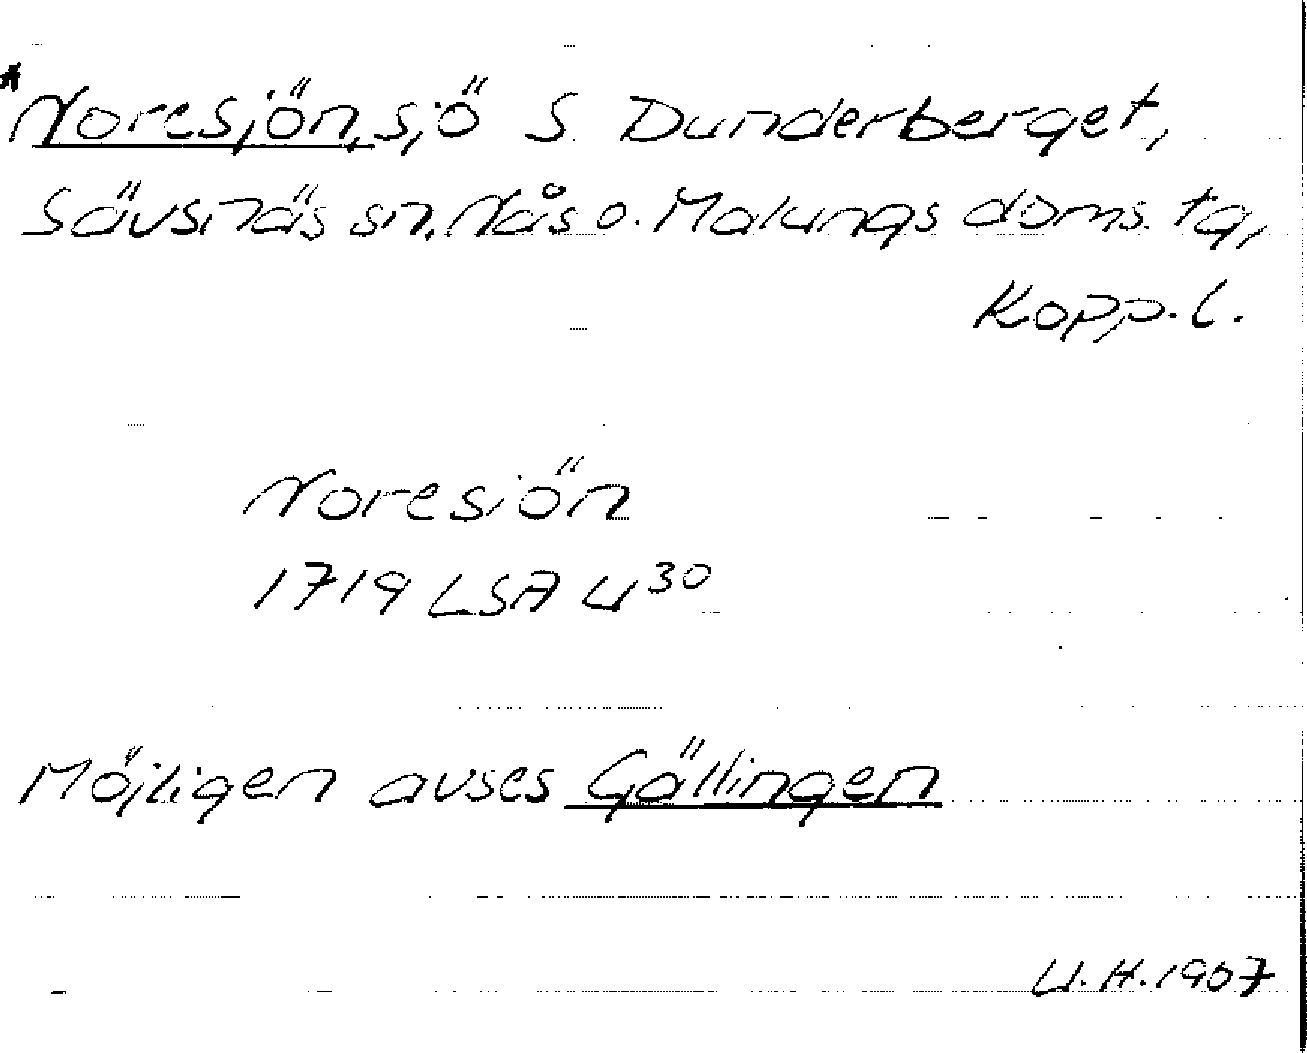 *Noresjön, sjö S. Dunderberget,
Sävsnäs sn, Nås o. Malungs doms. tg,
Kopp. l.
Noresiön
1719 LSA U³⁰
Möjligen avses Gällingen
U.H. 1967